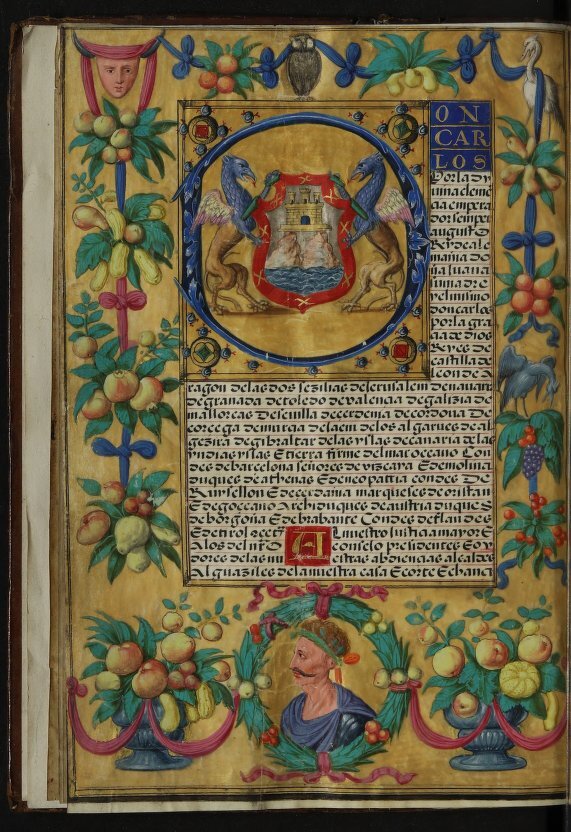 ON
CAR
LOS
Por la dy
uina cleme
cia empera
dor semper
augusto
Rey de ale
mania do
na Juana
su madre
y el mismo
don carlos
por la gra
cia de dios
Reyes de
castilla de
leon de a
ragon de las dos sezilias de Jerusalem de nauarra
de granada de toledo de valencia de galizia de
mallorcas De seuilla de cerdenia de cordoua De
corcega de murcia de Jaen de los algarues de al
gezira de gibraltar de las yslas de canaria de las
yndias yslas E tierra firme del mar occeano Con
des de barcelona señores de vizcaya E de molina
duques de athenas E de neopatria condes De
Ruysellon E de cerdania marqueses de oristan
E de goceano Archiduques de austria duques
de borgoña E de brabante Condes de flandes
E de tirol ecct. Al nuestro Justicia mayor E
A los del nro consejo presidentes E oy
dores de las nuestras abdiencias alcaldes
Alguaziles de la nuestra casa E corte E chanci